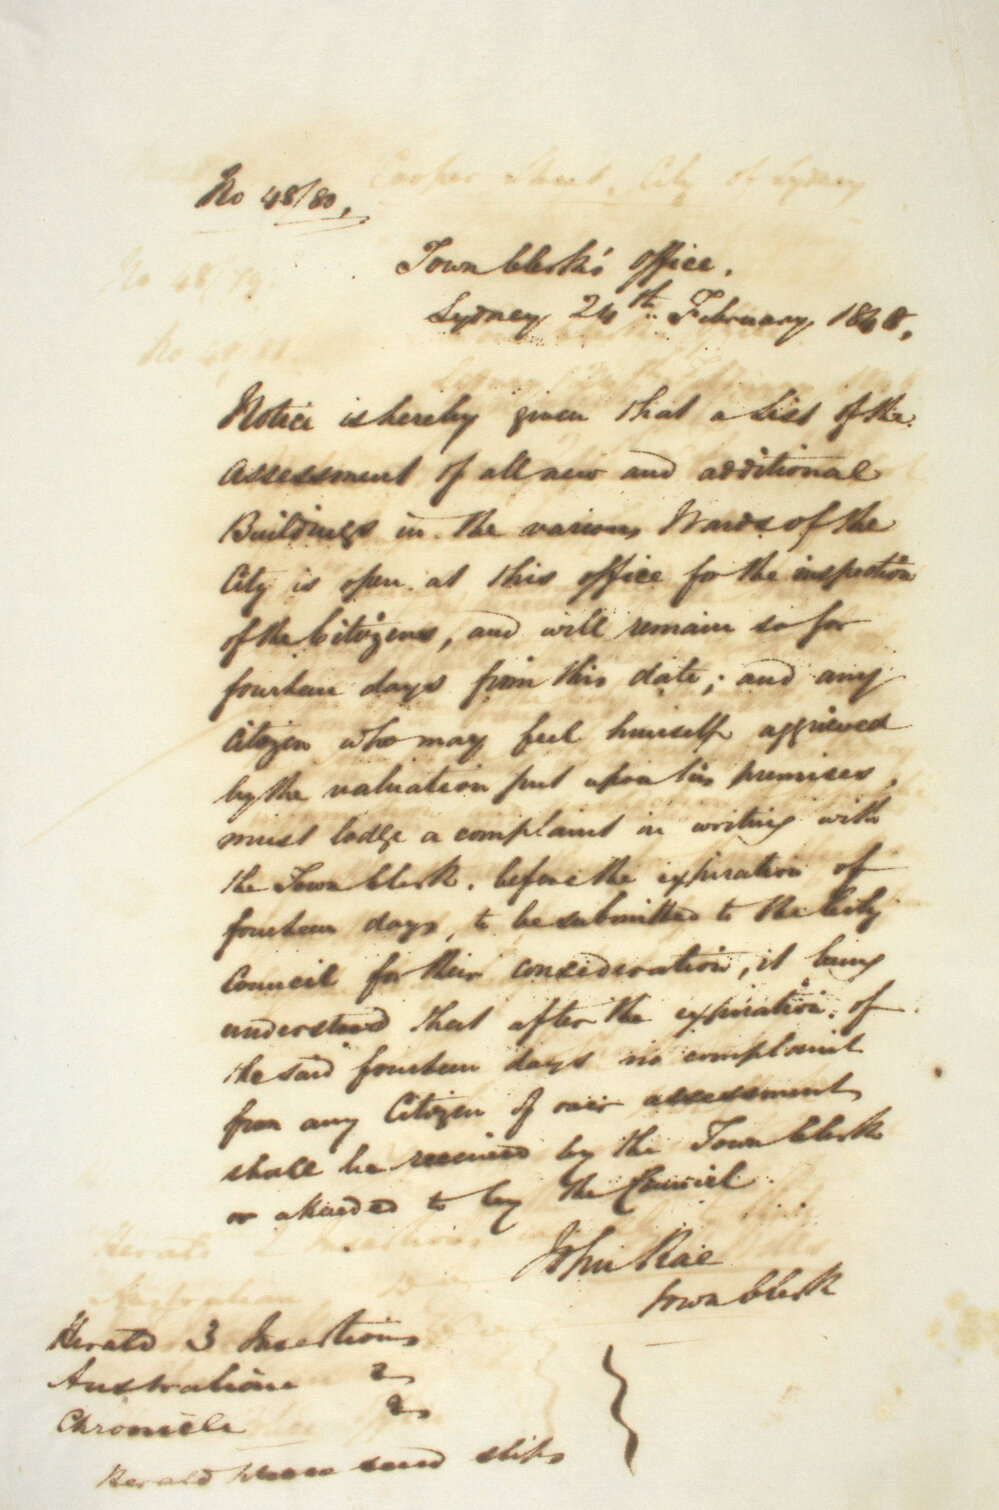 No 48/80.
Town Clerk's Office.
Sydney 24th February 1848.
Notice is hereby given that a List of the
Assessment of all new and additional
Buildings in the various Wards of the
City is open at this office for the inspection
of the Citizens, and will remain so for
fourteen days from this date; and any
Citizen who may feel himself aggrieved
by the valuation put upon his premises,
must lodge a complaint in writing with
the Town Clerk, before the expiration of
fourteen days, to be submitted to the City
Council for their consideration, it being
understood that after the expiration of
the said fourteen days no complaint
from any Citizen of over assessment
shall be received by the Town Clerk
or attended to by the Council.
John Rae
Town Clerk
Herald 3 Insertions
Australian 2
Chronicle 2
Herald please send slips